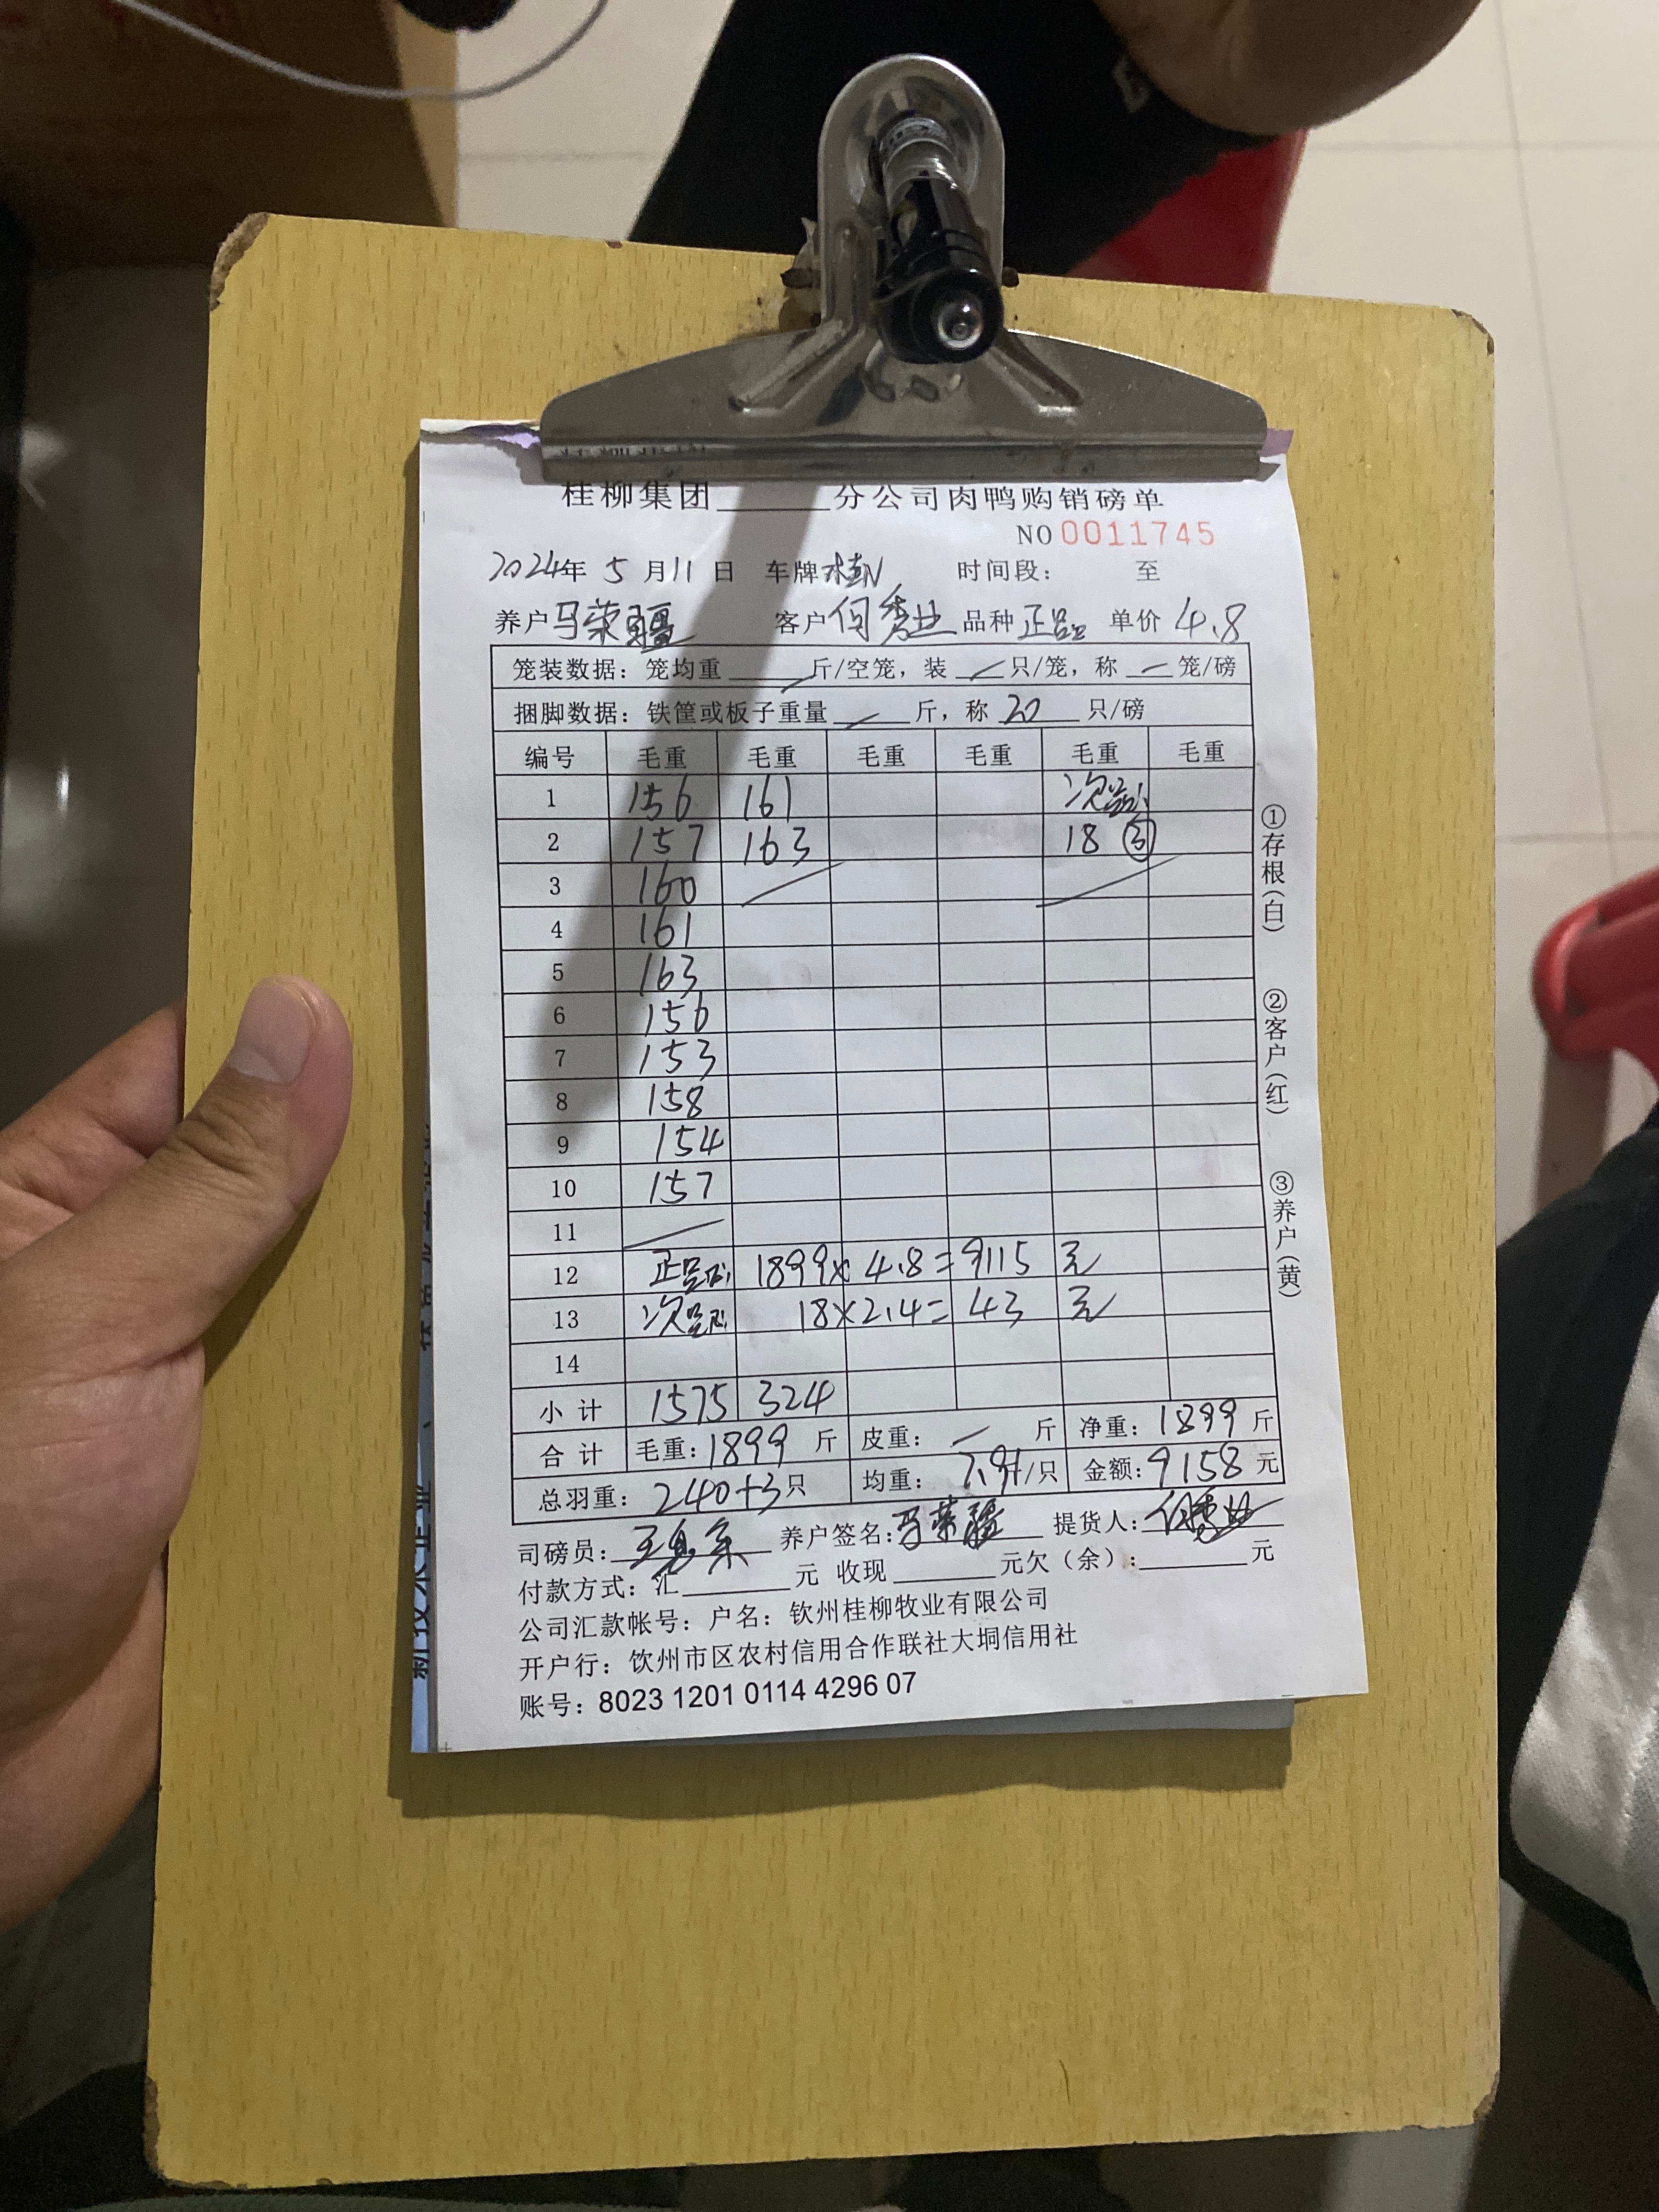 桂柳集团______分公司肉鸭购销磅单
NO 0011745
2024年 5 月 11 日 车牌 时间段: 至
养户 马荣疆 客户 何秀 品种 正品 单价 4.8
笼装数据: 笼均重 ／ 斤/空笼, 装 ／ 只/笼, 称 － 笼/磅
捆脚数据: 铁筐或板子重量 ／ 斤, 称 20 只/磅
编号 毛重 毛重 毛重 毛重 毛重 毛重
1 156 161 次品
2 157 163 18 ③
3 160
4 161
5 163
6 156
7 153
8 158
9 154
10 157
11
12 正品 1899×4.8=9115 元
13 次品 18×2.4=43 元
14
小计 1575 324
合计 毛重: 1899 斤 皮重: ／ 斤 净重: 1899 斤
总羽重: 240+3 只 均重: 7.91/只 金额: 9158 元
司磅员: 王 养户签名: 马荣疆 提货人: 何秀
付款方式: 汇______元 收现______元欠(余): ______元
公司汇款帐号: 户名: 钦州桂柳牧业有限公司
开户行: 钦州市区农村信用合作联社大垌信用社
账号: 8023 1201 0114 4296 07
①存根(白) ②客户(红) ③养户(黄)